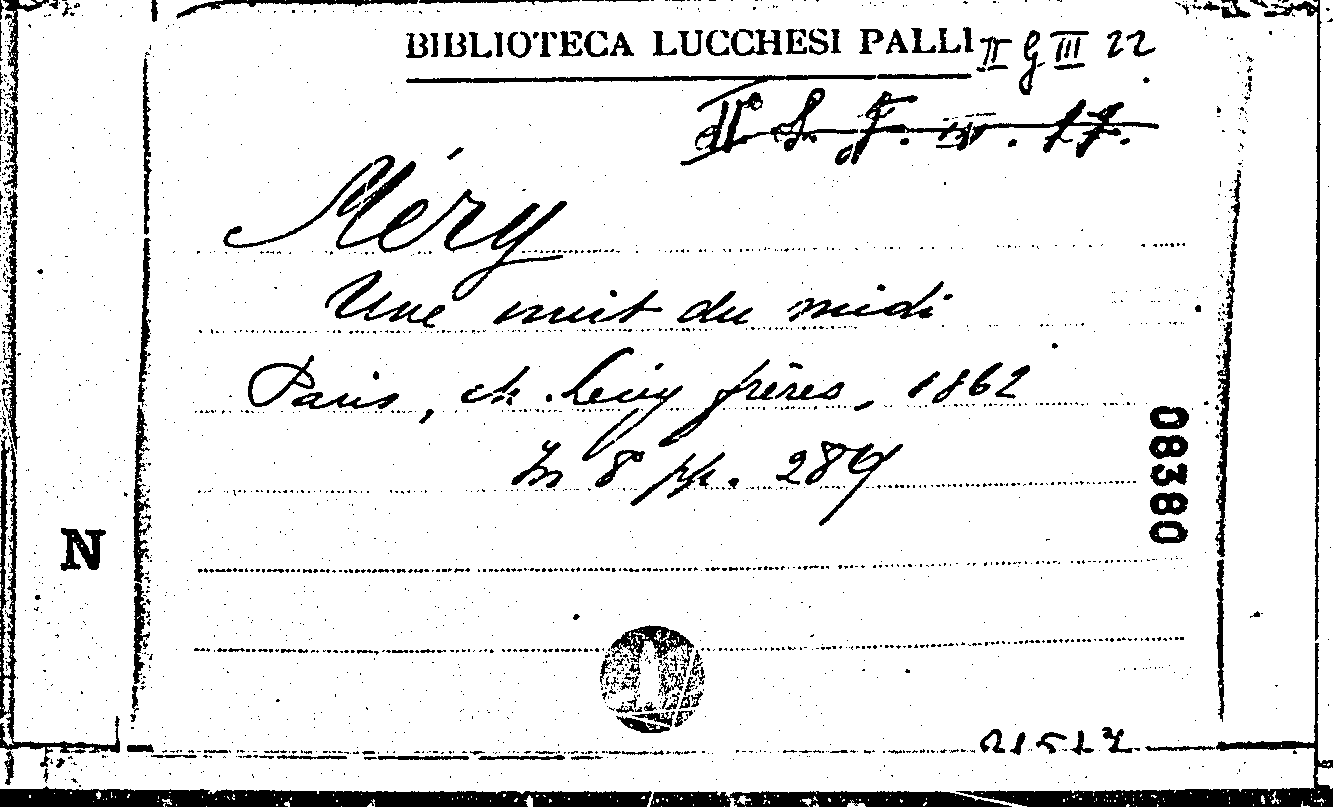 BIBLIOTECA LUCCHESI PALLI II G III 22
Méry
Une nuit du midi
Paris, ch. Levy frères, 1862
In 8° pp. 289
08380
N